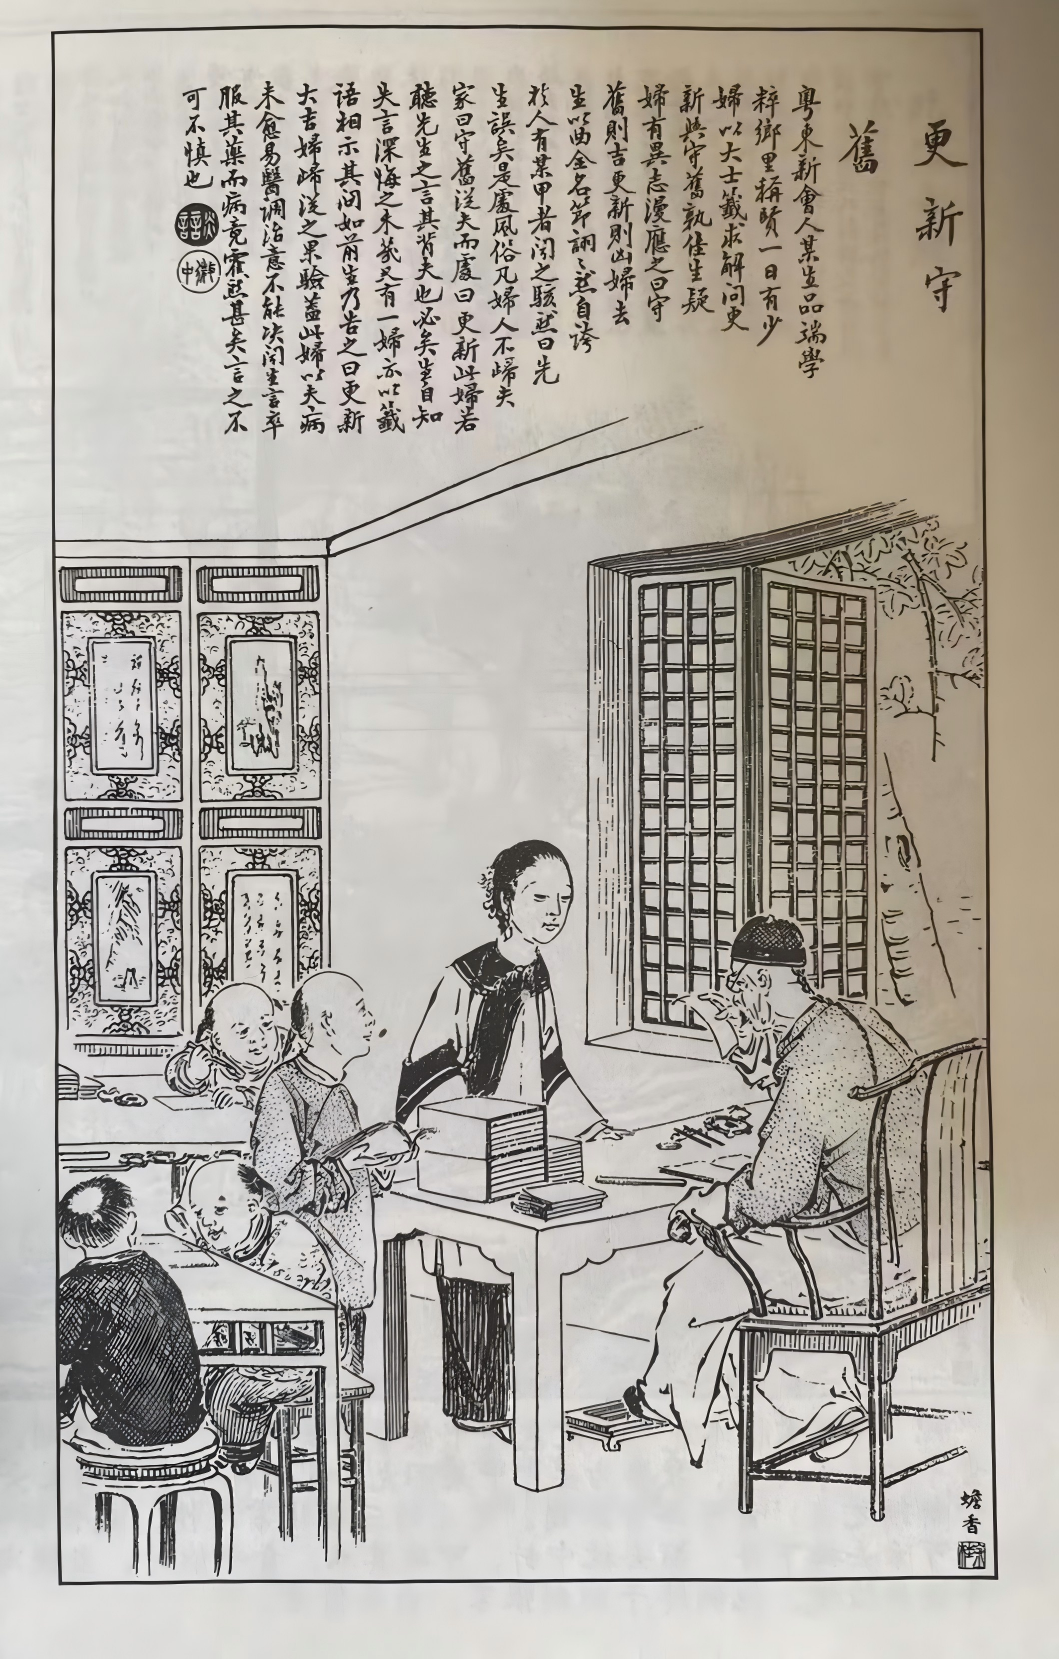 更新守
舊
粵東新會人某生品端學
粹鄉里稱賢一日有少
婦以大士籤求解問更
新與守舊孰佳生疑
婦有異志漫應之曰守
舊則吉更新則凶婦去
生以曲全名節詡詡然自誇
於人有某甲者聞之駭然曰先
生誤矣是處風俗凡婦人不歸夫
家曰守舊從夫而處曰更新此婦若
聽先生之言其背夫也必矣生自知
失言深悔之未幾又有一婦亦以籤
語相示其問如前生乃告之曰更新
大吉婦歸從之果驗蓋此婦以夫病
未愈易醫調治意不能決聞生言卒
服其藥而病竟霍然甚矣言之不
可不慎也
蟾香